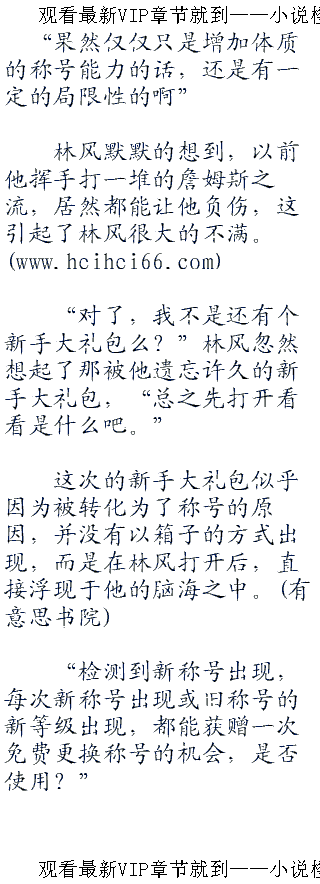 观看最新VIP章节就到——小说检
“果然仅仅只是增加体质
的称号能力的话，还是有一
定的局限性的啊”
林风默默的想到，以前
他挥手打一堆的詹姆斯之
流，居然都能让他负伤，这
引起了林风很大的不满。
(www.hcihci66.com)
“对了，我不是还有个
新手大礼包么？”林风忽然
想起了那被他遗忘许久的新
手大礼包，“总之先打开看
看是什么吧。”
这次的新手大礼包似乎
因为被转化为了称号的原
因，并没有以箱子的方式出
现，而是在林风打开后，直
接浮现于他的脑海之中。(有
意思书院)
“检测到新称号出现，
每次新称号出现或旧称号的
新等级出现，都能获赠一次
免费更换称号的机会，是否
使用？”
观看最新VIP章节就到——小说检